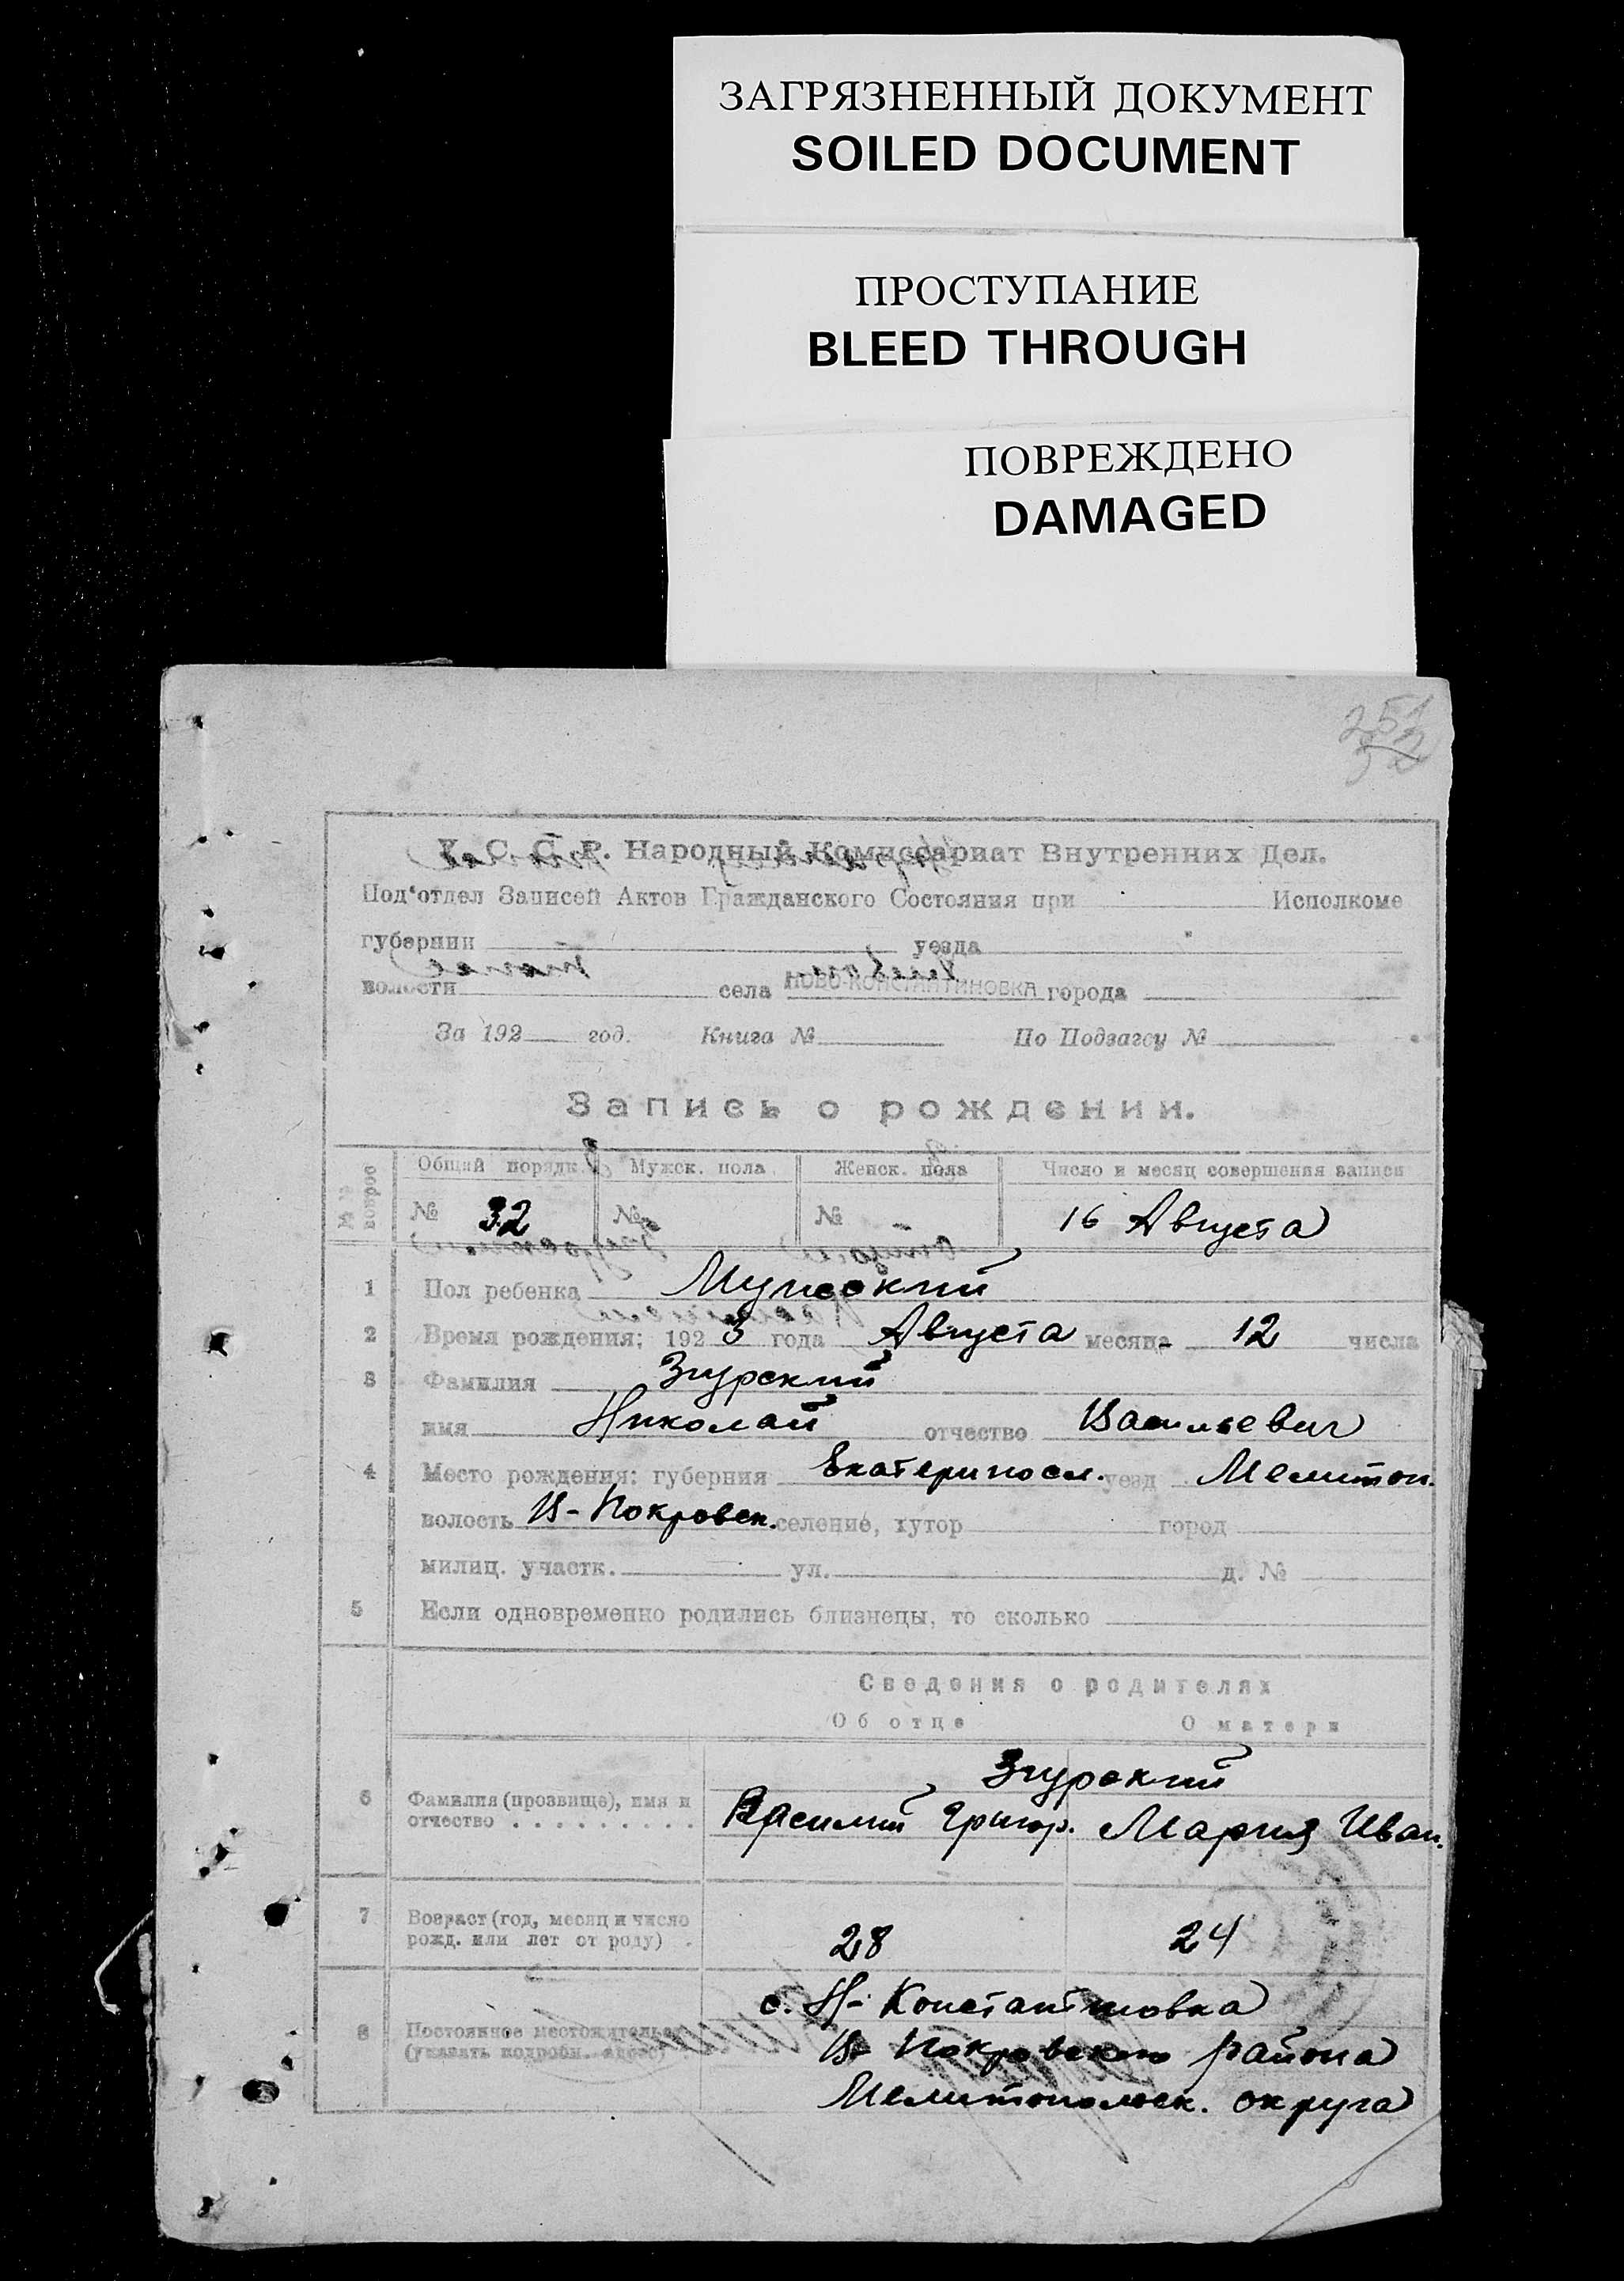 ЗАГРЯЗНЕННЫЙ ДОКУМЕНТ
SOILED DOCUMENT
ПРОСТУПАНИЕ
BLEED THROUGH
ПОВРЕЖДЕНО
DAMAGED
У. С. С. Р. Народный Комиссариат Внутренних Дел.
Под'отдел Записей Актов Гражданского Состояния при Исполкоме
губернии уезда
волости села НОВО-КОНСТАНТИНОВКА города
За 192 год. Книга № По Подзагсу №
Запись о рождении.
Общий порядк. Мужск. пола Женск. пола Число и месяц совершения записи
№ 32 № № 16 Августа
1 Пол ребенка Мужской
2 Время рождения: 192 3 года Августа месяца 12 числа
3 Фамилия Згурский
имя Николай отчество Васильевич
4 Место рождения: губерния Екатериносл. уезд Мелитоп.
волость В-Покровск. селение, хутор город
милиц. участк. ул. д. №
5 Если одновременно родились близнецы, то сколько
Сведения о родителях
Об отце О матери
Згурский
6 Фамилия (прозвище), имя и отчество Василий Григор. Мария Иван.
7 Возраст (год, месяц и число рожд. или лет от роду) 28 24
с. Н-Константиновка
8 Постоянное местожительство (указать подробн. адрес) В-Покровского района
Мелитопольск. округа